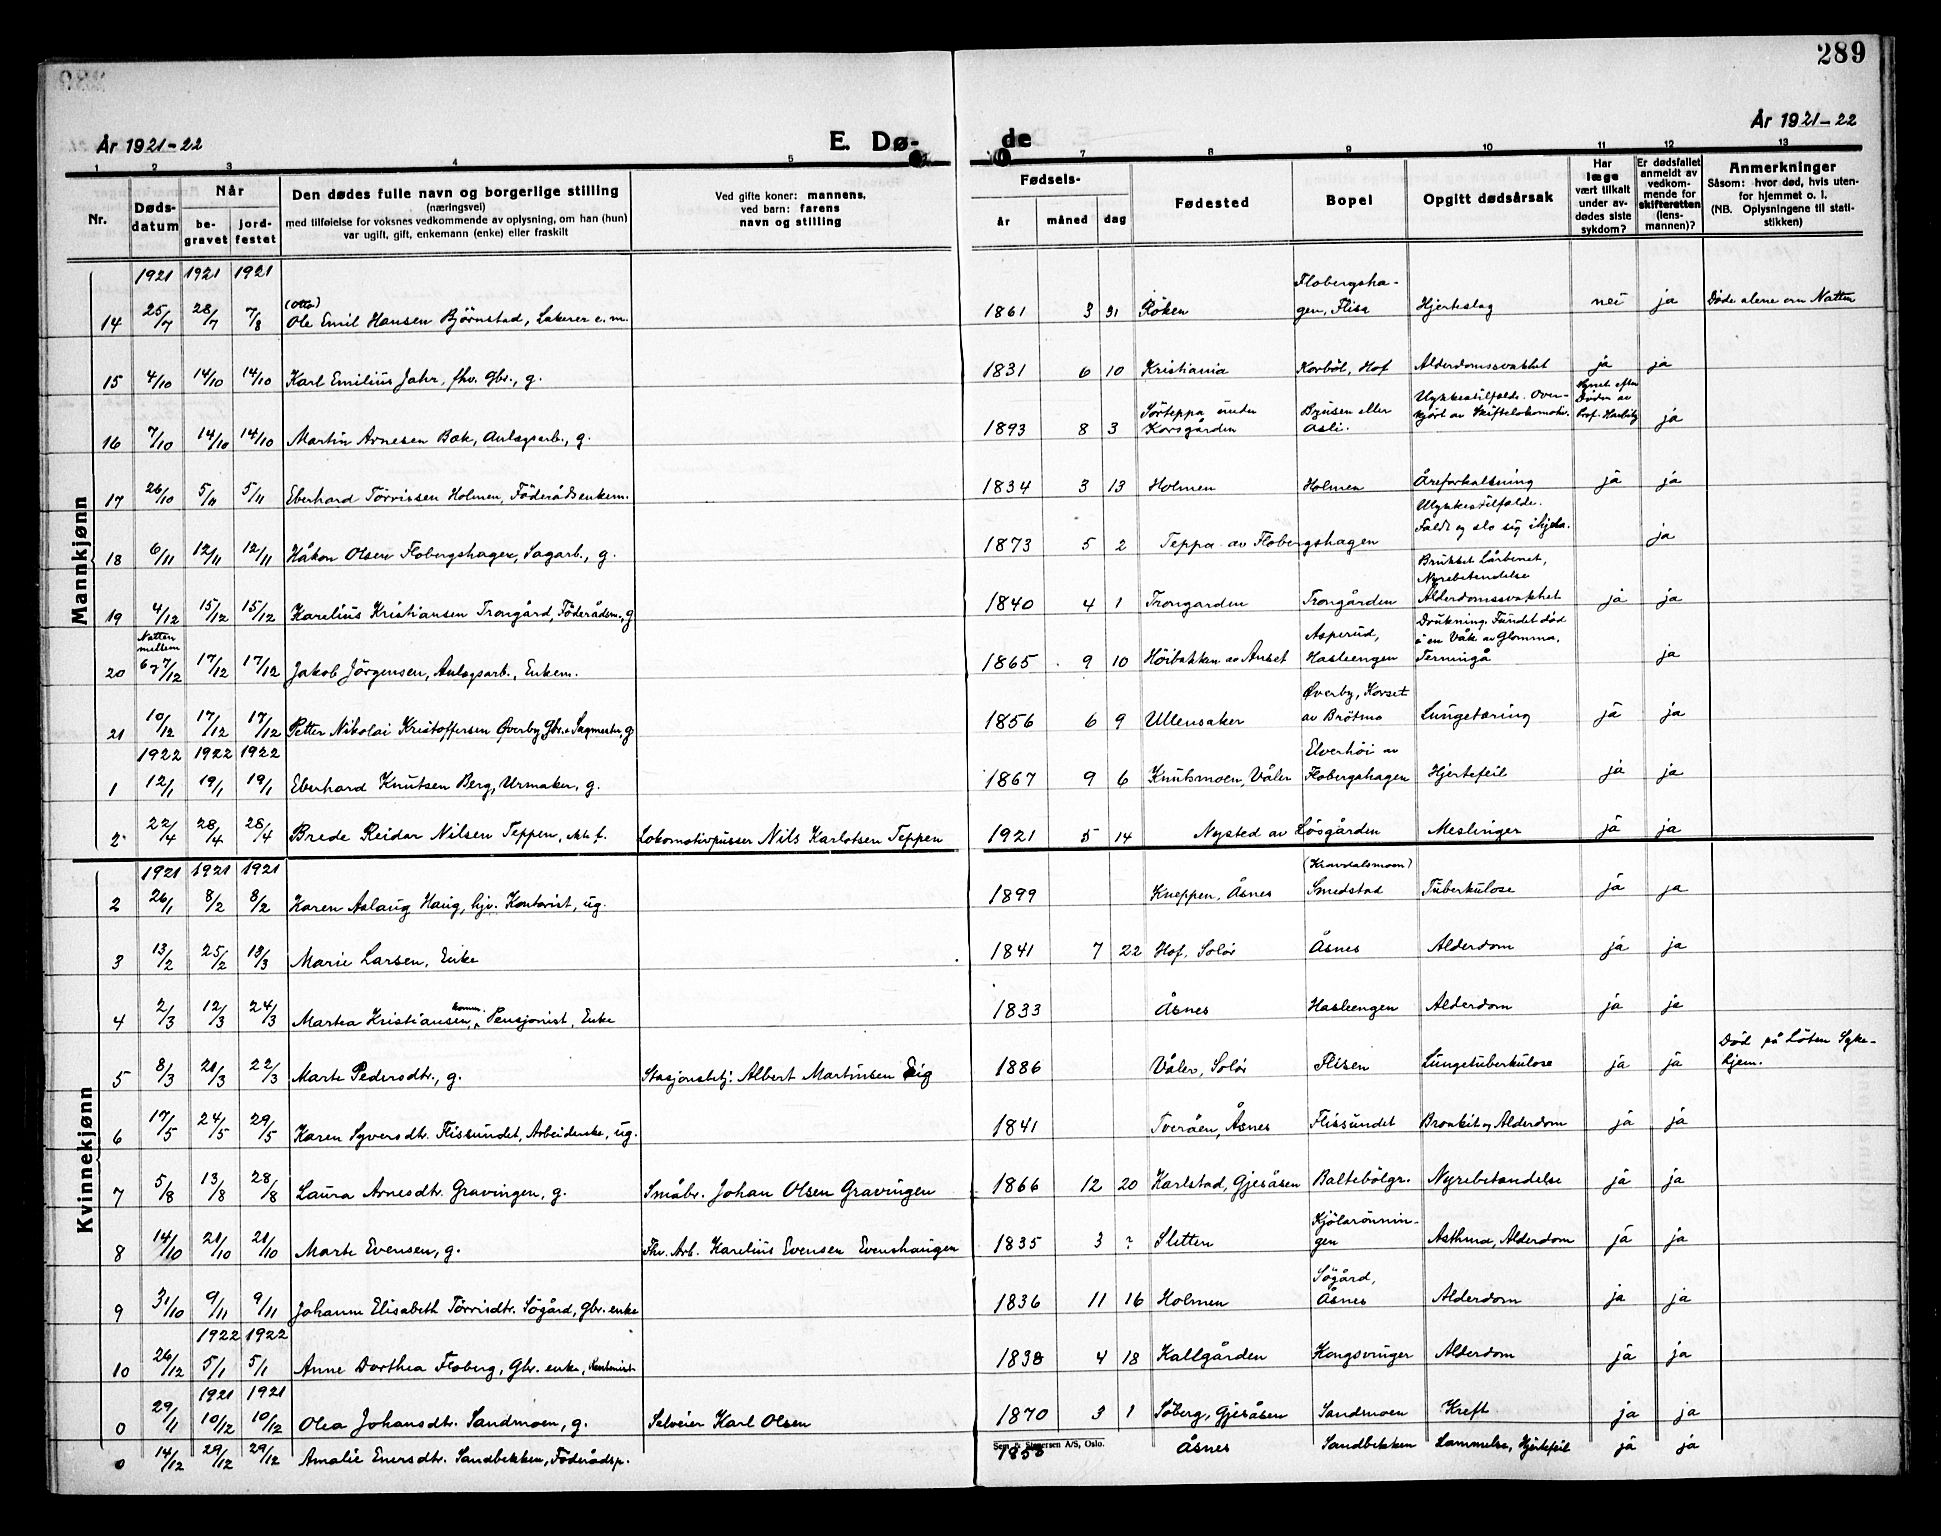 289
År 1921-22
E. Dø-
de
År 1921-22
1 2 3 4 5 7 8 9 10 11 12 13
Nr.
Døds-
datum
Når
be-
gravet
jord-
festet
Den dødes fulle navn og borgerlige stilling
(næringsvei)
med tilføielse for voksnes vedkommende av oplysning, om han (hun)
var ugift, gift, enkemann (enke) eller fraskilt
Ved gifte koner: mannens,
ved barn: farens
navn og stilling
Fødsels-
år måned dag
Fødested
Bopel
Opgitt dødsårsak
Har
læge
vært tilkalt
under av-
dødes siste
sykdom?
Er dødsfallet
anmeldt av
vedkom-
mende for
skifteretten
(lens-
mannen)?
Anmerkninger
Såsom: hvor død, hvis uten-
for hjemmet o. l.
(NB. Oplysningene til stati-
stikken)
Mannkjønn
1921 1921 1921
(Otto)
Flobergsha-
14 25/7 28/7 7/8 Ole Emil Hansen Bjørnstad, Lakerer e.m. 1861 3 31 Röken gen, Flisa Hjerteslag nei ja Døde alene om Natten
15 4/10 14/10 14/10 Karl Emilius Jahr, fhv. Gbr., g. 1831 6 10 Kristiania Korböl, Hof Alderdomssvakhet ja ja
Sörteppa under Bjusen eller Ulykkestilfælde. Over- Synet efter
Døden av
16 7/10 14/10 14/10 Martin Arnesen Bak, Anlægsarb., g. 1893 8 3 Korsgården Åsli. kjört av Skiftelokomotiv. Prof. Harbitz ja
17 26/10 5/11 5/11 Eberhard Törrissen Holmen, Föderådsenkem. 1834 3 13 Holmen Holmen Åreforkalkning ja ja
Ulykkestilfælde.
Faldt og slo sig ihjel.
18 6/11 12/11 12/11 Håkon Olsen Flobergshagen, Sagarb., g. 1873 5 2 Teppa av Flobergshagen ja
Brukket Lårbenet,
Nyrebetendelse
19 4/12 15/12 15/12 Karelius Kristiansen Trongård, Föderådsm., g 1840 4 1 Trongarden Trongården Alderdomssvakhet ja ja
Natten
mellem
Asperud, Drukning. Fundet död
i en Våk av Glomma,
20 6-7/12 17/12 17/12 Jakob Jörgensen, Anlægsarb., Enkem. 1865 9 10 Höibakken av Anset Hasleengen Terningå ja
Øverby, Korset
21 10/12 17/12 17/12 Petter Nikolai Kristoffersen Øverby Gbr. Sagmester, g 1856 6 9 Ullensaker av Brötmo Lungetæring ja ja
1922 1922 1922
Elverhöi av
1 12/1 19/1 19/1 Eberhard Knutsen Berg, Urmaker, g. 1867 9 6 Knutsmoen, Våler Flobergshagen Hjertefeil ja ja
2 22/4 28/4 28/4 Brede Reidar Nilsen Teppen, ekte f. Lokomotivpusser Nils Karlotsen Teppen 1921 5 14 Nysted av Lösgården Meslinger ja ja
Kvinnekjønn
1921 1921 1921
(Kravdalsmoen)
2 26/1 8/2 8/2 Karen Aslaug Haug, hjv. Kontorist, ug. 1899 Kneppen, Åsnes Smedstad Tuberkulose ja ja
3 13/2 25/2 13/3 Marie Larsen, Enke 1841 7 22 Hof, Solör Åsnes Alderdom ja ja
komm.
4 2/3 12/3 24/3 Martea Kristiansen, Pensjonist, Enke 1833 Åsnes Hasleengen Alderdom ja ja
Död på Löten Syke-
5 8/3 21/3 22/3 Marte Pedersdtr., g. Stasjonsbetj. Albert Martinsen Eig 1886 Våler, Solör Flisen Lungetuberkulose ja ja hjem.
6 17/5 24/5 29/5 Karen Syversdtr. Flissundet, Arbeiderske, ug. 1841 Tveråen, Åsnes Flissundet Bronkit og Alderdom ja ja
7 5/8 13/8 28/8 Laura Arnesdtr. Gravingen, g. Småbr. Johan Olsen Gravingen 1866 12 20 Karlstad, Gjesåsen Baltebölgr. Nyrebetendelse ja ja
Kjölarönnin-
8 14/10 21/10 21/10 Marte Evensen, g. Fhv. Arb. Karelius Evensen Evenshaugen 1835 3 ? Sletten gen Asthma, Alderdom ja ja
Sögård,
9 31/10 9/11 9/11 Johanne Elisabeth Törrisdtr. Sögård, Gbr. enke 1836 11 16 Holmen Åsnes Alderdom ja ja
1922 1922
10 26/12 5/1 5/1 Anne Dorthea Floberg, Gbr. enke, 1838 4 18 Kallgården Kongsvinger Alderdom ja ja
1921 1921
0 29/11 10/12 10/12 Olea Johansdtr. Sandmoen, g. Selveier Karl Olsen 1870 3 1 Söberg, Gjesåsen Sandmoen Kreft ja ja
Sem & Stenersen A/S, Oslo.
0 14/12 29/12 29/12 Amalie Enersdtr. Sandbekken, Föderådsp. 1853 Åsnes Sandbekken Lammelse, Hjertefeil ja ja